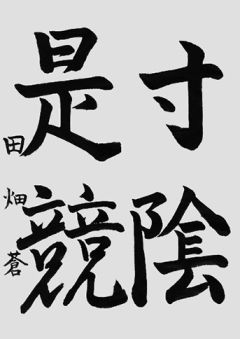 寸陰
是競
田畑蒼